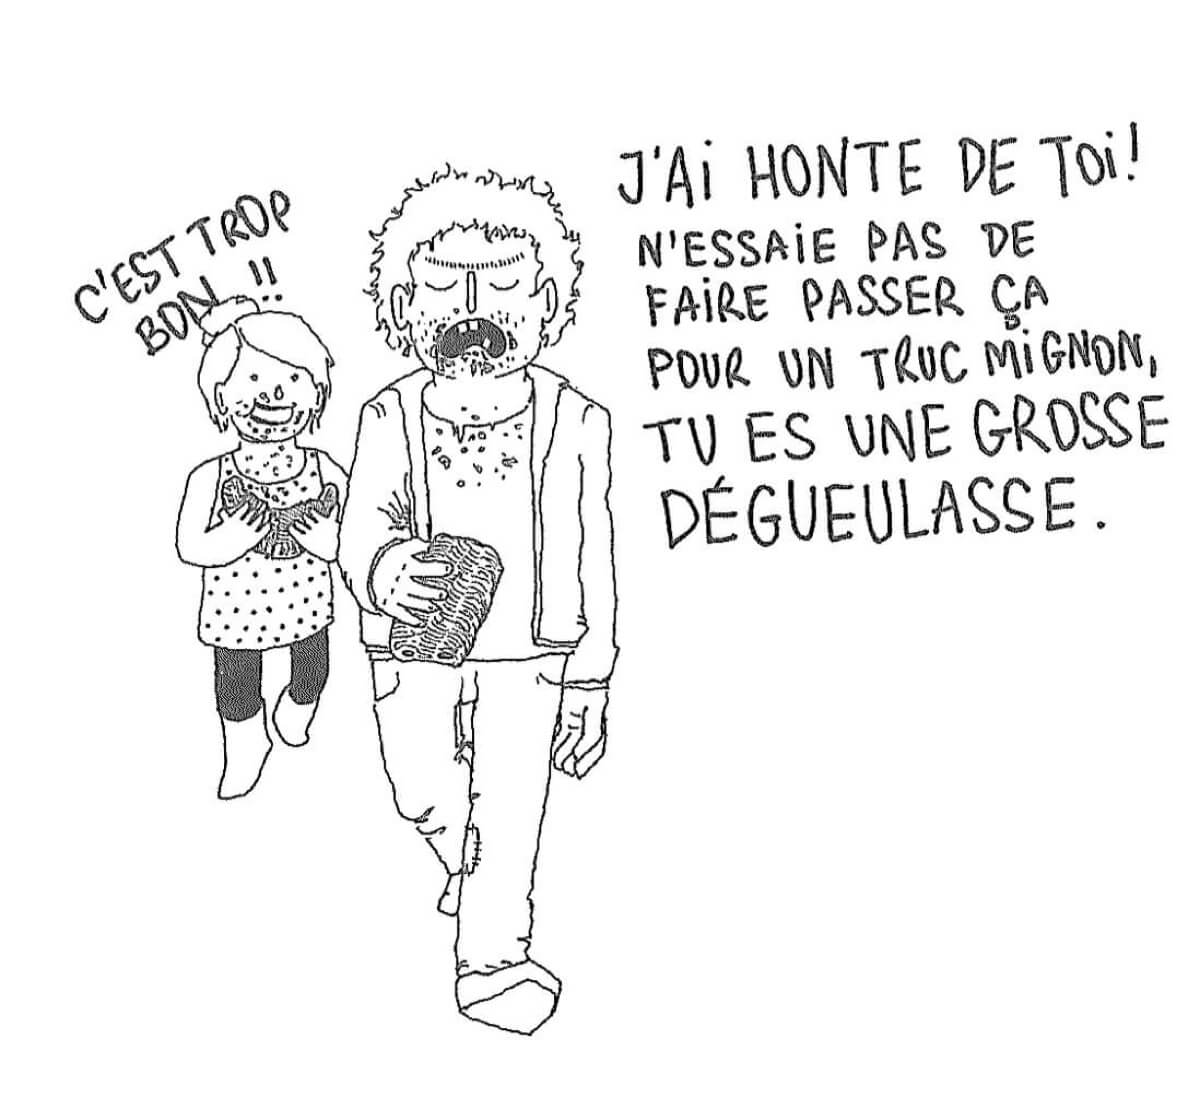 C'EST TROP
BON !!
J'Ai HONTE DE TOi!
N'ESSAiE PAS DE
FAiRE PASSER ÇA
POUR UN TRUC MiGNON,
TU ES UNE GROSSE
DÉGUEULASSE.